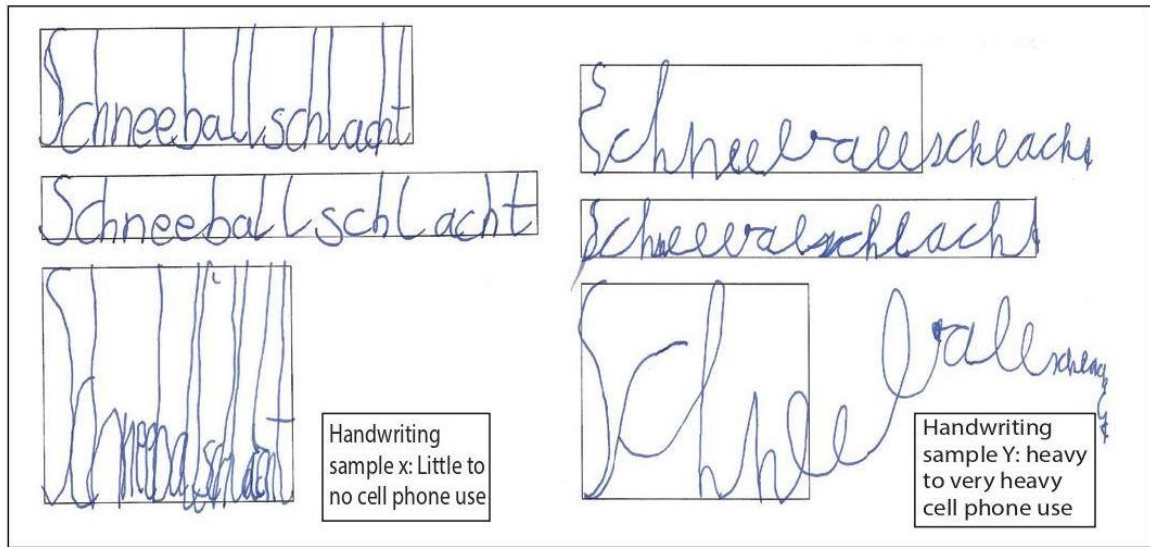 Schneeballschlacht
Schneeballschlacht
Schneeballschlacht
Handwriting
sample x: Little to
no cell phone use
Schneeballschlacht
Schneeballschlacht
Schneeballschlacht
Handwriting
sample Y: heavy
to very heavy
cell phone use